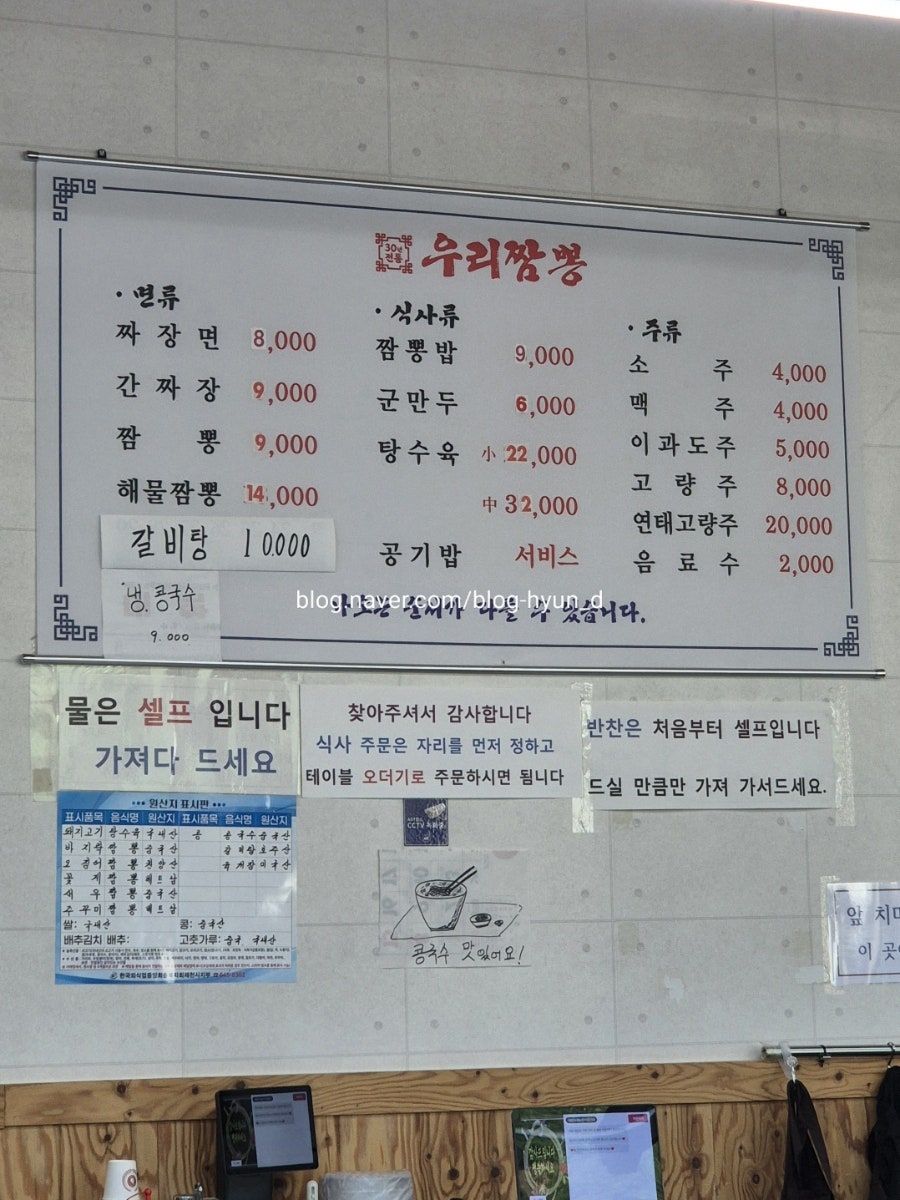 30년
전통
우리짬뽕
· 면류
짜장면 8,000
간짜장 9,000
짬뽕 9,000
해물짬뽕 14,000
갈비탕 10.000
냉.콩국수
9.000
· 식사류
짬뽕밥 9,000
군만두 6,000
탕수육 小 22,000
中 32,000
공기밥 서비스
· 주류
소주 4,000
맥주 4,000
이과도주 5,000
고량주 8,000
연태고량주 20,000
음료수 2,000
수 있습니다.
blog.naver.com/blog-hyun_d
물은 셀프 입니다
가져다 드세요
찾아주셔서 감사합니다
식사 주문은 자리를 먼저 정하고
테이블 오더기로 주문하시면 됩니다
반찬은 처음부터 셀프입니다
드실 만큼만 가져 가서드세요.
원산지 표시판
표시품목 음식명 원산지 표시품목 음식명 원산지
돼지고기 탕수육 국내산
바지락 짬뽕 중국산
오징어 짬뽕 원양산
꽃게 짬뽕
새우 짬뽕 중국산
주꾸미 짬뽕 베트남
쌀: 국내산 콩: 중국산
배추김치 배추: 고춧가루: 중국 국내산
CCTV 녹화중
콩국수 맛있어요!
앞 치마
이 곳